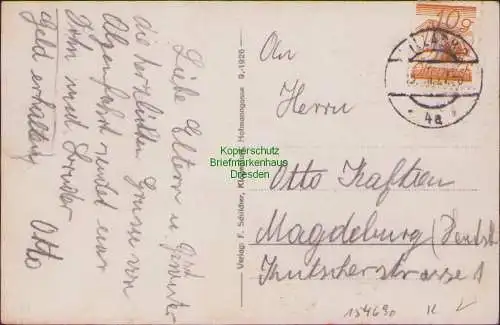 Liebe Eltern u. Geschwister
die herzlichsten Grüsse von
Alpenfahrt sendet euer
Sohn und Bruder
Geld erhalten Otto
Verlag F. Schilcher, Klagenfurt, Hofmanngasse 9.-1926
An
Herrn
Otto Kafthen
Magdeburg (Deutschl
Kutscherstrasse 1
10g
4a
Kopierschutz
Briefmarkenhaus
Dresden
15469o